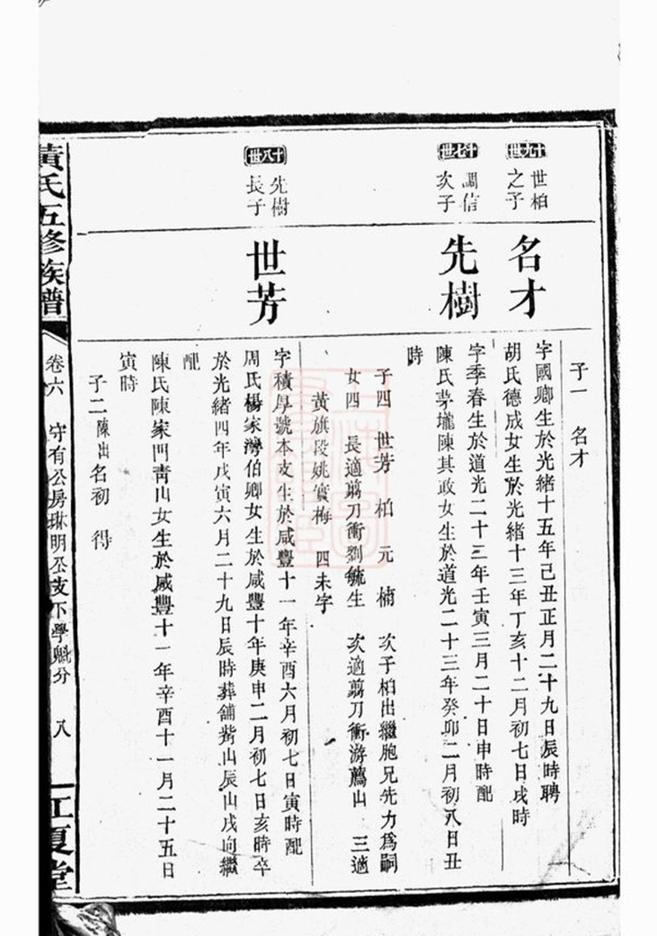 子一 名才
十九世
世柏
之子
名才
字國鄉生於光緒十五年己丑正月二十九日辰時聘
胡氏德成女生於光緒十三年丁亥十二月初七日戌時
十七世
調信
次子
先樹
字季春生於道光二十三年壬寅三月二十日申時配
陳氏茅壠陳其政女生於道光二十三年癸卯二月初八日丑
時
子四 世芳 柏 元 楠 次子柏出繼胞兄先力為嗣
女四 長適剪刀衝劉毓生 次適剪刀衝游薦山 三適
黃旗段姚實梅 四未字
十八世
先樹
長子
世芳
字積厚號本支生於咸豐十一年辛酉六月初七日寅時配
周氏楊家灣伯卿女生於咸豐十年庚申二月初七日亥時卒
於光緒四年戊寅六月二十九日辰時葬舖觜山辰山戌向繼
配
陳氏陳家門青山女生於咸豐十一年辛酉十一月二十五日
寅時
子二 陳出 名初 得
黃氏五修族譜
卷六 守有公房琳明公支下學魁分 八
江夏堂